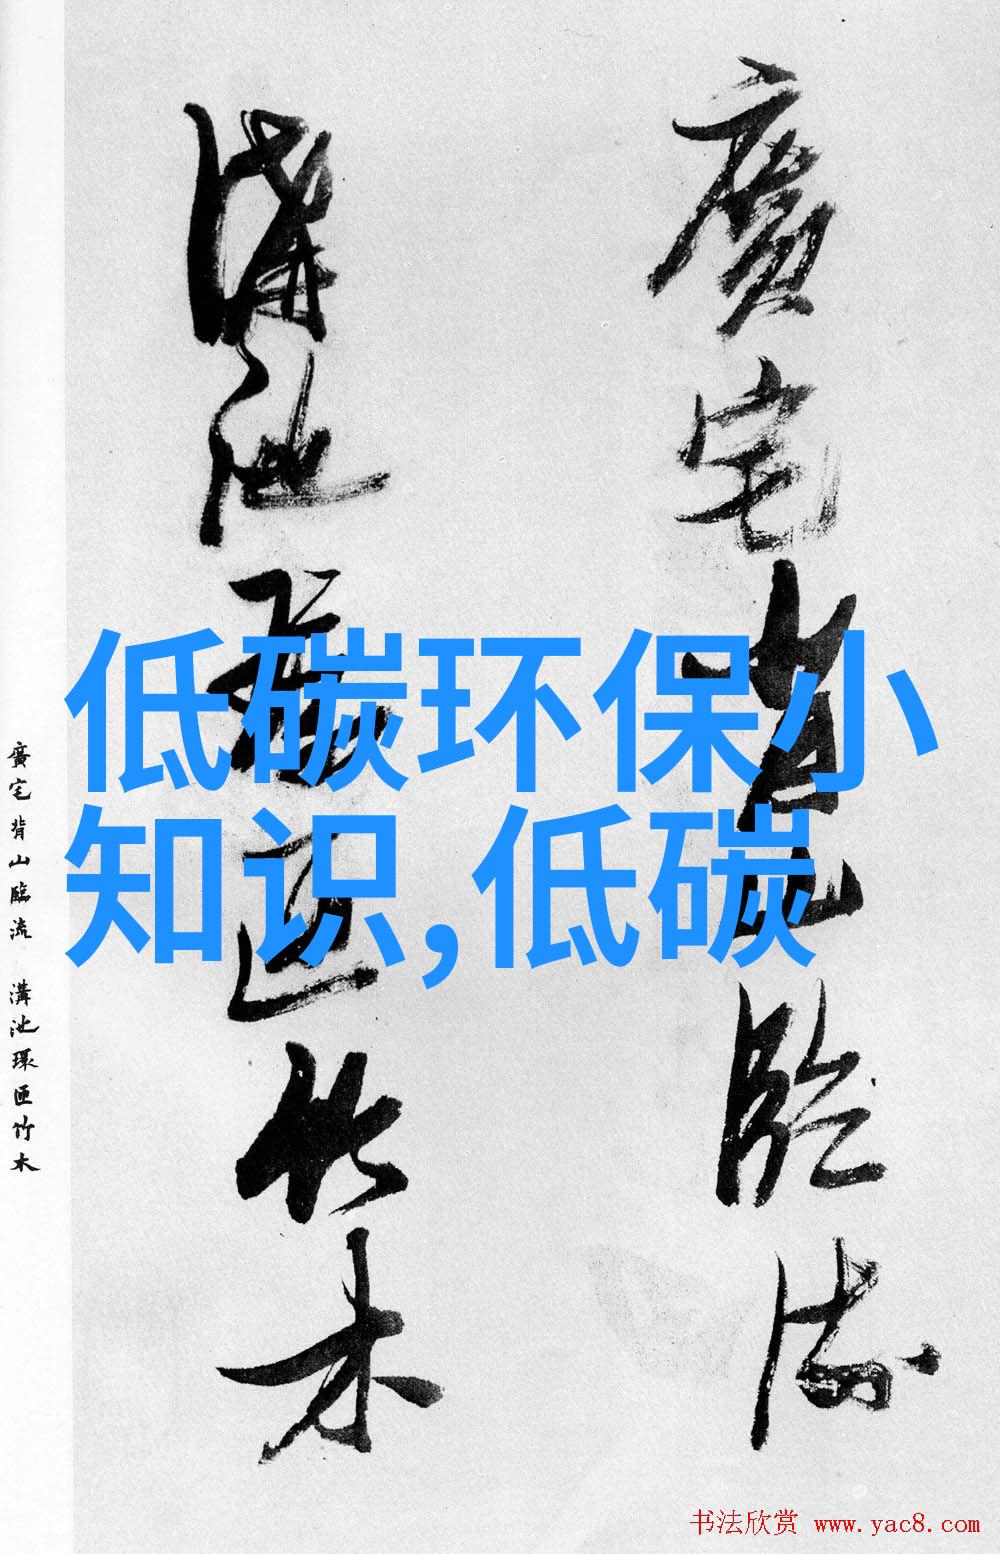 廣宅背山臨流
溝池環匝竹木
低碳环保小
知识,低碳
廣宅背山臨流 溝池環匝竹木
书法欣赏 www.yac8.com